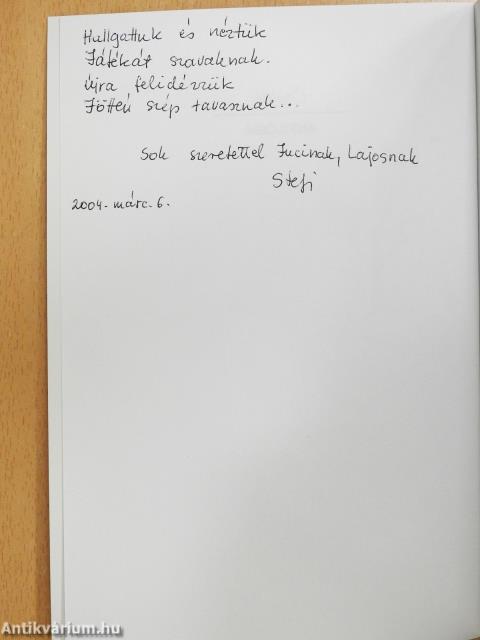 Hallgattuk és néztük
Játékát szavaknak.
újra felidézzük
Jöttén szép tavasznak...
Sok szeretettel Jucinak, Lajosnak
Stefi
2004. márc. 6.
Antikvárium.hu